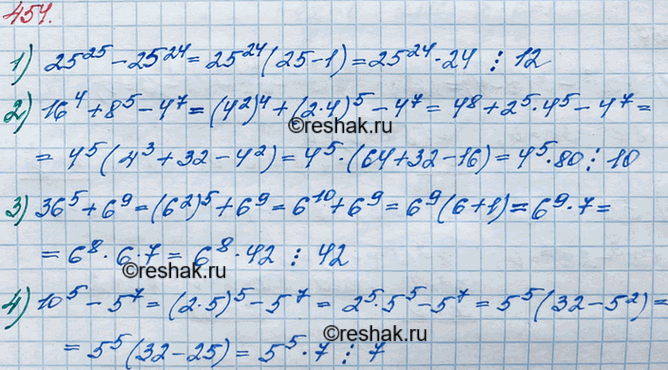 454.
1) 25²⁵ − 25²⁴ = 25²⁴ (25 − 1) = 25²⁴ · 24 ⋮ 12
2) 16⁴ + 8⁵ − 4⁷ = (4²)⁴ + (2·4)⁵ − 4⁷ = 4⁸ + 2⁵ · 4⁵ − 4⁷ =
©reshak.ru
= 4⁵ (4³ + 32 − 4²) = 4⁵ · (64 + 32 − 16) = 4⁵ · 80 ⋮ 10
3) 36⁵ + 6⁹ = (6²)⁵ + 6⁹ = 6¹⁰ + 6⁹ = 6⁹ (6 + 1) = 6⁹ · 7 =
©reshak.ru
= 6⁸ · 6 · 7 = 6⁸ · 42 ⋮ 42
©reshak.ru
4) 10⁵ − 5⁷ = (2·5)⁵ − 5⁷ = 2⁵ · 5⁵ − 5⁷ = 5⁵ (32 − 5²) =
©reshak.ru
= 5⁵ (32 − 25) = 5⁵ · 7 ⋮ 7